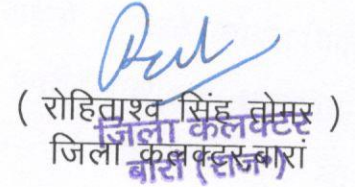 ( रोहिताश्व सिंह तोमर )
जिला कलक्टर
जिला कलक्टर बारां
बारां (राज०)